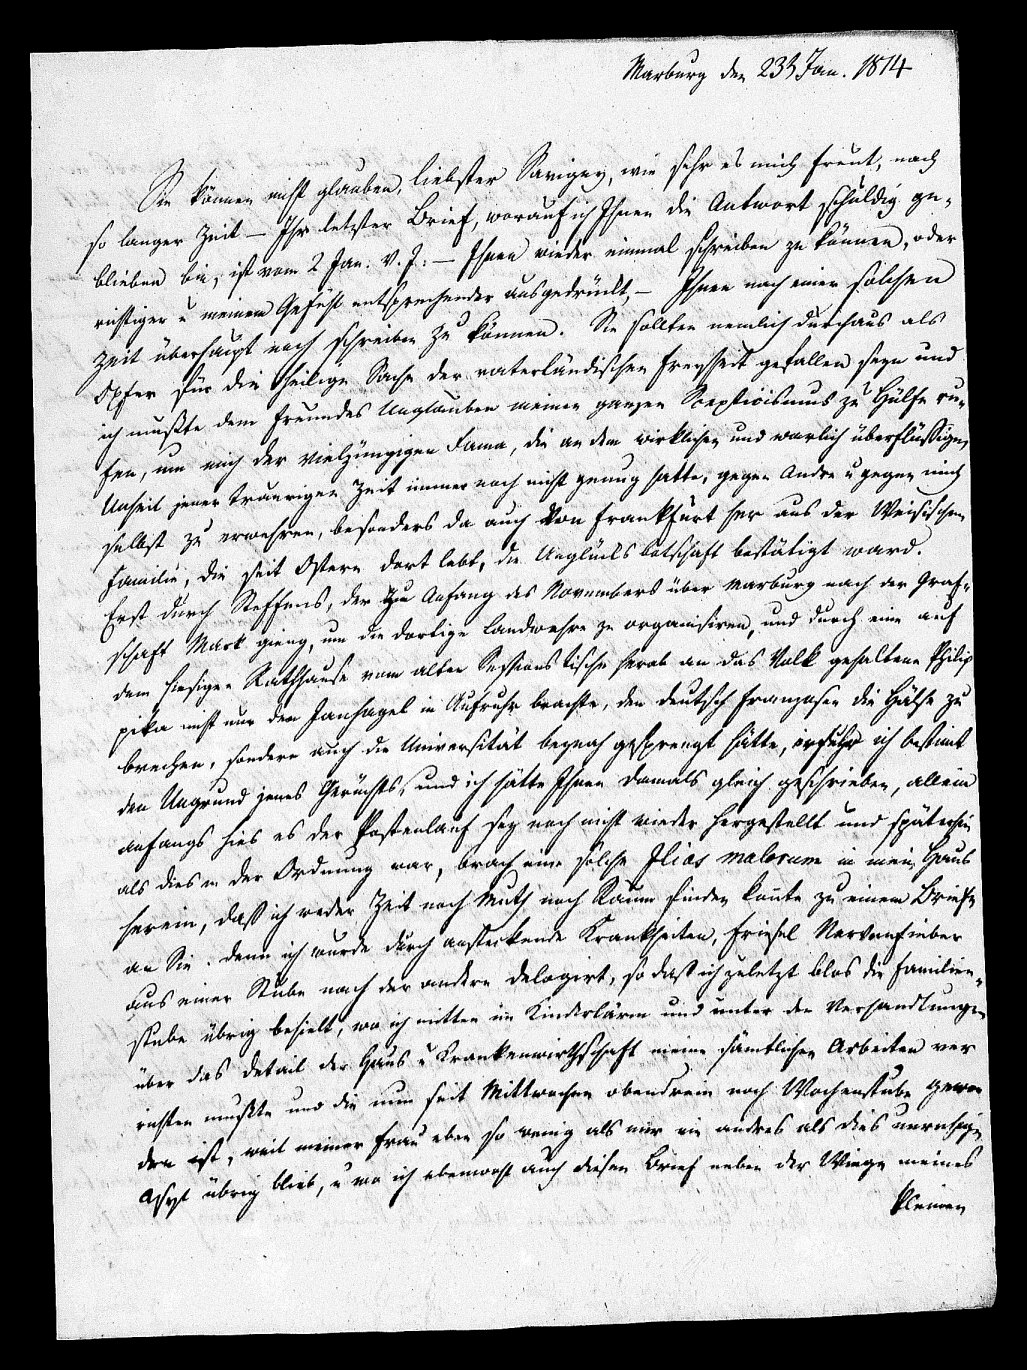 Marburg den 23t Jan. 1814
Sie können nicht glauben, liebster Savigny, wie sehr es mich freut, nach
so langer Zeit — Ihr letzter Brief, worauf ich Ihnen die Antwort schuldig ge-
blieben bin, ist vom 2 Jan. v. J. — Ihnen wieder einmal schreiben zu können, oder
richtiger u meinem Gefühl entsprechender ausgedrückt, — Ihnen nach einer solchen
Zeit überhaupt noch schreiben zu können. Sie sollten nemlich durchaus als
Opfer für die heilige Sache der vaterländischen Freyheit gefallen seyn und
ich mußte dem Freundes Unglauben meinen ganzen Scepticismus zu Hülfe ru-
fen, um mich der vielzüngigen Fama, die an dem wirklichen und warlich überflüßigen
Unheil jener traurigen Zeit immer noch nicht genug hatte, gegen Andre u gegen mich
selbst zu erwehren, besonders da auch von Frankfurt her aus der Weisischen
Familie, die seit Ostern dort lebt, die Unglücksbotschaft bestätigt ward.
Erst durch Steffens, der zu Anfang des Novembers über Marburg nach der Graf-
schaft Mark gieng, um die dortige Landwehre zu organisiren, und durch eine auf
dem hiesigen Rathhause vom alten Sessionstische herab an das Volk gehaltene Philip
pika nicht nur den Janhagel in Aufruhr brachte, den deutsch Franzosen die Hälse zu
brechen, sondern auch die Universität beynah gesprengt hätte, erfuhr ich bestimt
den Ungrund jenes Gerüchts, und ich hätte Ihnen damals gleich geschrieben, allein
anfangs hies es der Postenlauf sey noch nicht wieder hergestellt und späterhin
als dies in der Ordnung war, brach eine solche Ilias malorum in mein Haus
herein, daß ich weder Zeit noch Muth noch Raum finden konte zu einem Briefe
an Sie. Denn ich wurde durch ansteckende Krankheiten, Friesel Nervenfieber
aus einer Stube nach der andern delogirt, so daß ich zuletzt blos die Familien-
stube übrig behielt, wo ich mitten im Kinderlärm und unter den Verhandlungen
über das Detail der Haus u Krankenwirthschaft meine sämtlichen Arbeiten ver
richten mußte und die nun seit Mittwochen obendrein noch Wochenstube gewor
den ist, weil meiner Frau eben so wenig als mir ein andres als dies unruhige
Asyl übrig blieb, u wo ich ebenwohl auch diesen Brief neben der Wiege meines
kleinen